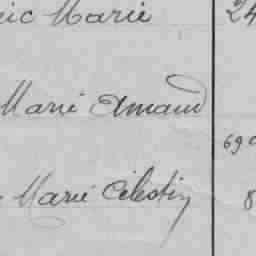 ric Marie 24
Marie Amand
690
Marie Célestin 8